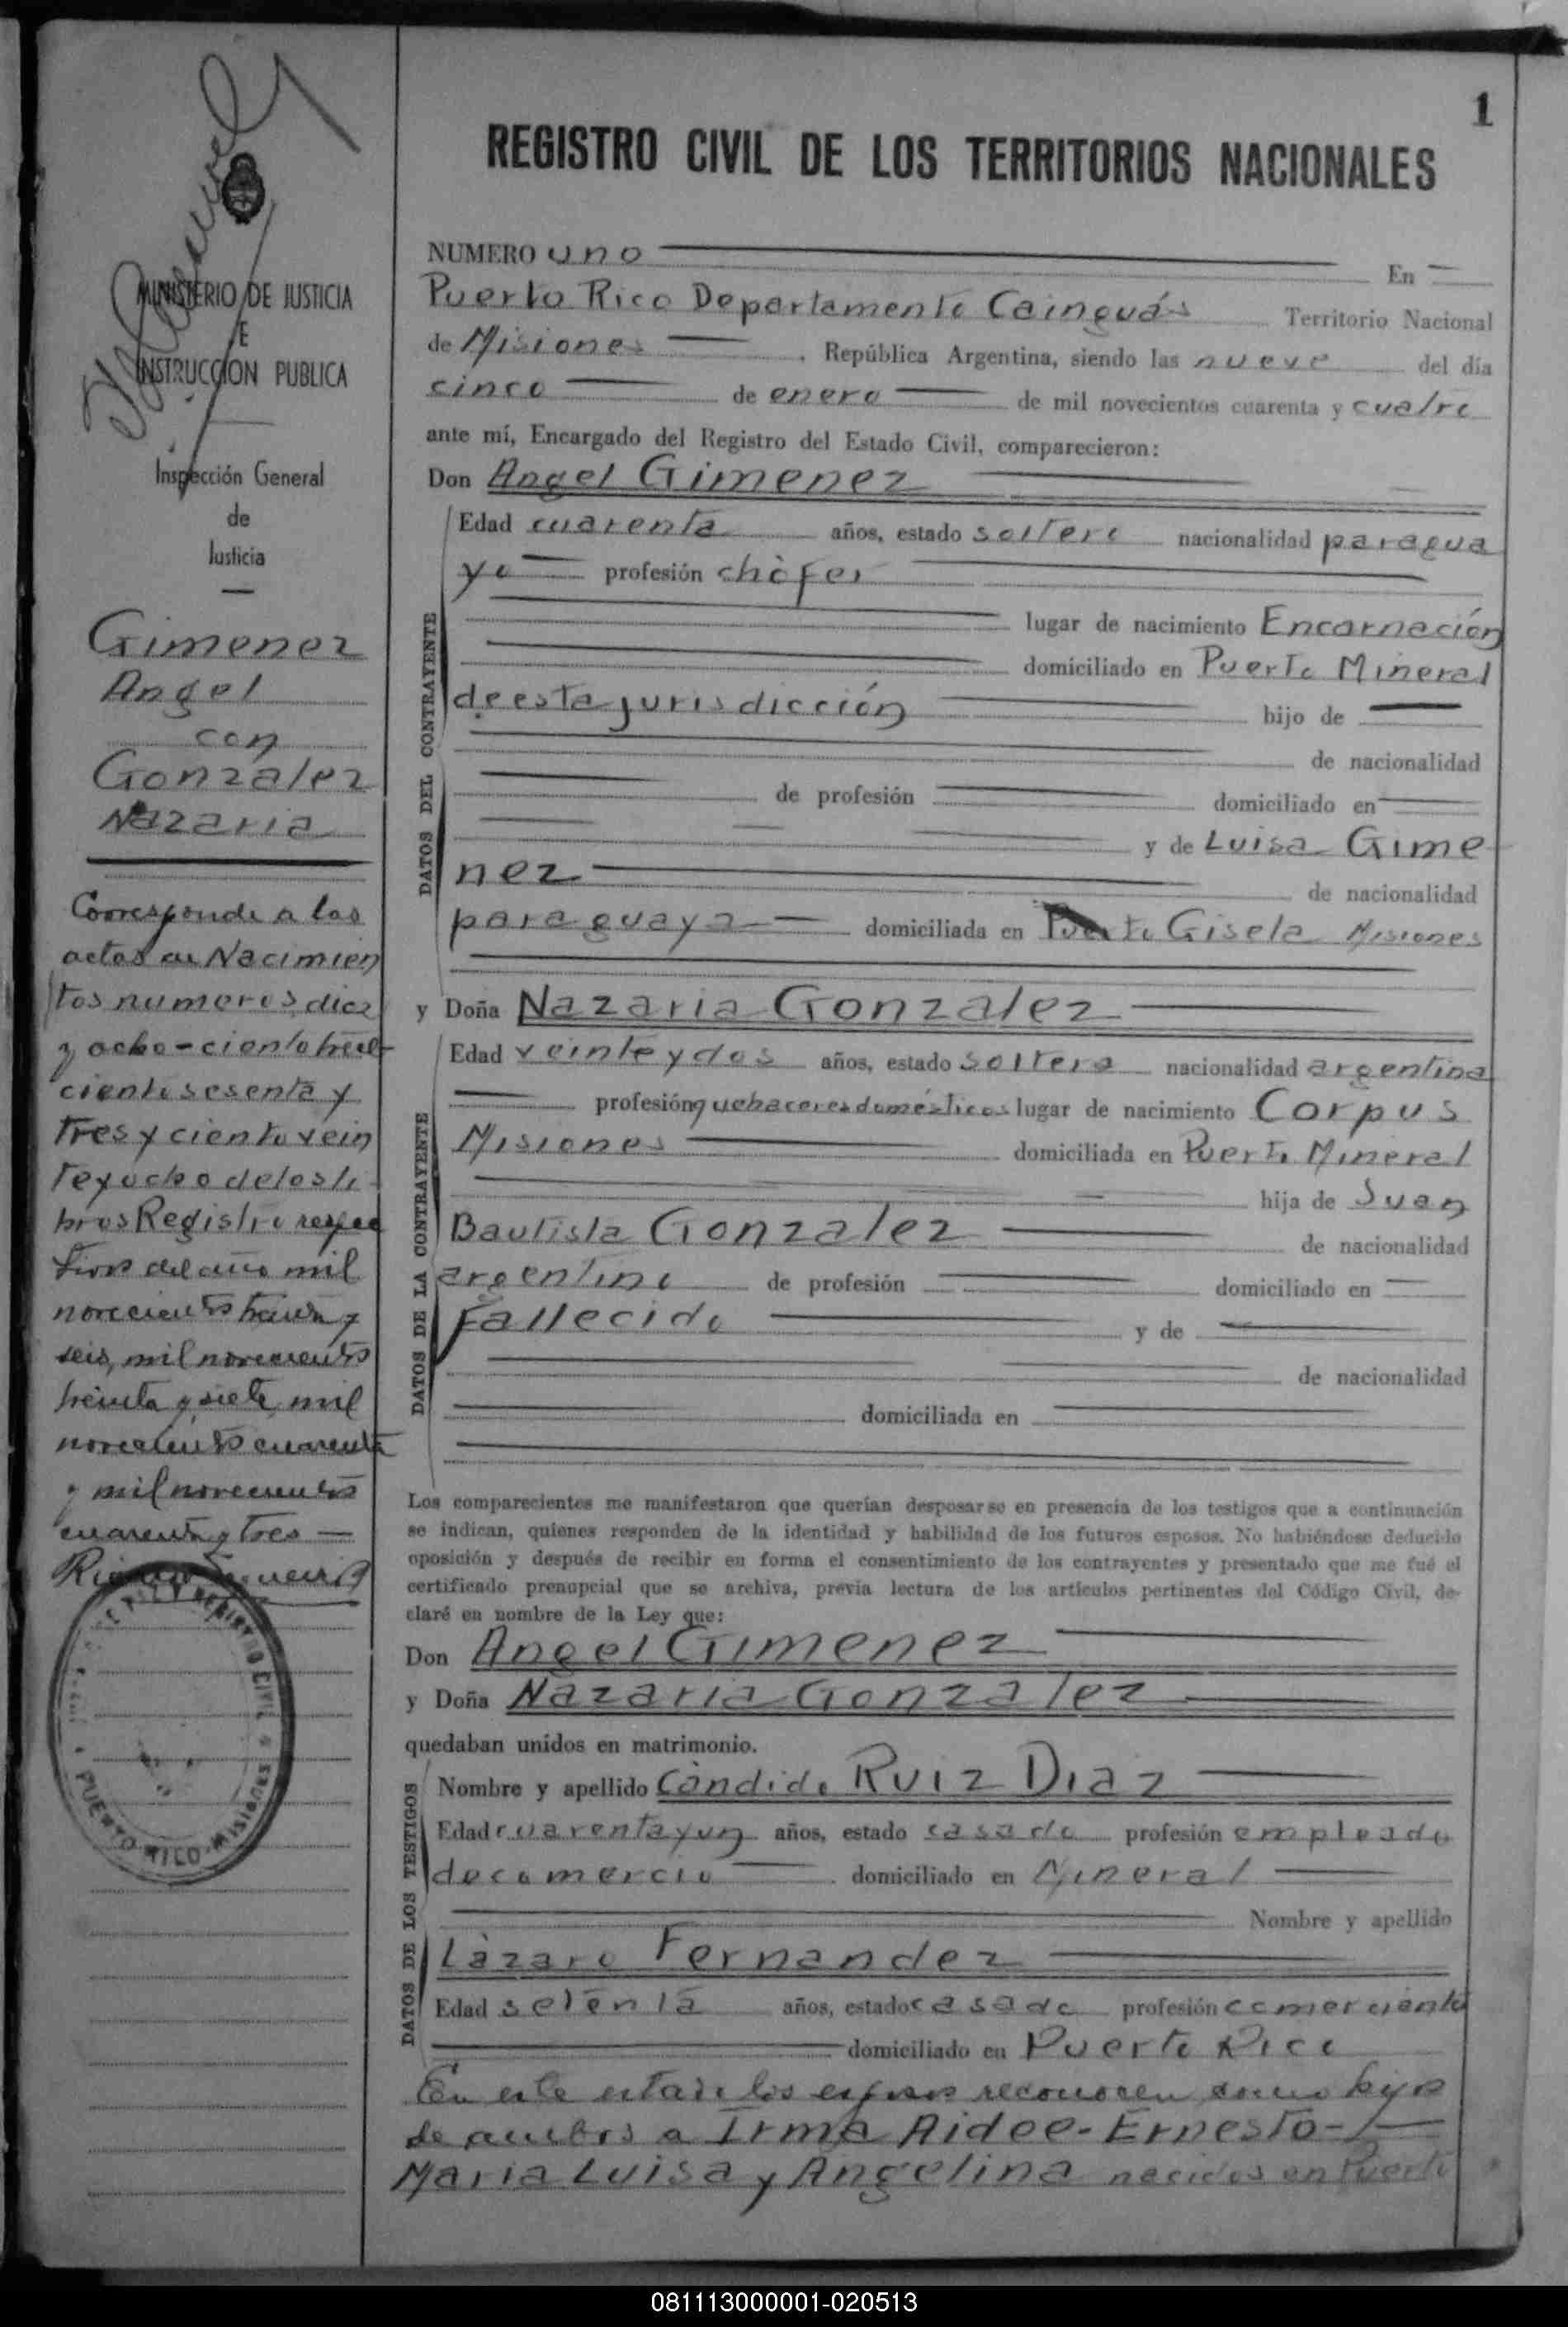 1
REGISTRO CIVIL DE LOS TERRITORIOS NACIONALES
MINISTERIO DE JUSTICIA
E
INSTRUCCION PUBLICA
Inspección General
de
Justicia
Gimenez
Angel
con
Gonzalez
Nazaria
Corresponde a las
actas de Nacimien
tos numeros diez
y ocho - ciento trece -
ciento sesenta y
tres y ciento vein
te y ocho de los li
bros Registro respec
tivos del año mil
novecientos treinta y
seis, mil novecientos
treinta y siete, mil
novecientos cuarenta
y mil novecientos
cuarenta y tres —
REGISTRO CIVIL
PUERTO RICO - Misiones
NUMERO uno En
Puerto Rico Departamento Cainguás Territorio Nacional
de Misiones , República Argentina, siendo las nueve del día
cinco de enero de mil novecientos cuarenta y cuatro
ante mí, Encargado del Registro del Estado Civil, comparecieron:
Don Angel Gimenez
DATOS DEL CONTRAYENTE
Edad cuarenta años, estado soltero nacionalidad paragua
yo profesión chòfer
lugar de nacimiento Encarnación
domiciliado en Puerto Mineral
de esta jurisdicción hijo de
de nacionalidad
de profesión domiciliado en
y de Luisa Gime
nez de nacionalidad
paraguaya domiciliada en Puerto Gisela Misiones
y Doña Nazaria Gonzalez
DATOS DE LA CONTRAYENTE
Edad veinte y dos años, estado soltera nacionalidad argentina
profesión quehaceres domésticos lugar de nacimiento Corpus
Misiones domiciliada en Puerto Mineral
hija de Juan
Bautista Gonzalez de nacionalidad
argentino de profesión domiciliado en
fallecido y de
de nacionalidad
domiciliada en
Los comparecientes me manifestaron que querían desposarse en presencia de los testigos que a continuación
se indican, quienes responden de la identidad y habilidad de los futuros esposos. No habiéndose deducido
oposición y después de recibir en forma el consentimiento de los contrayentes y presentado que me fué el
certificado prenupcial que se archiva, previa lectura de los artículos pertinentes del Código Civil, de-
claré en nombre de la Ley que:
Don Angel Gimenez
y Doña Nazaria Gonzalez
quedaban unidos en matrimonio.
DATOS DE LOS TESTIGOS
Nombre y apellido Càndido Ruiz Diaz
Edad cuarenta y un años, estado casado profesión empleado
de comercio domiciliado en Mineral
Nombre y apellido
Làzaro Fernandez
Edad setenta años, estado casado profesión comerciante
domiciliado en Puerto Rico
En este estado los esposos reconocen como hijos
de ambos a Irma Aidee - Ernesto -
Maria Luisa y Angelina nacidos en Puerto
081113000001-020513